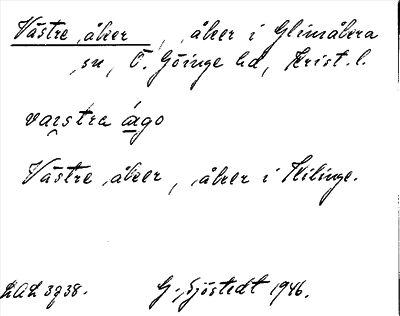 Västre åker, åker i Glimåkra
sn, Ö. Göinge hd, Krist. l.
varstra ågo
Västre åker, åker i Kilinge.
LAL 3938.    G. Sjöstedt 1946.